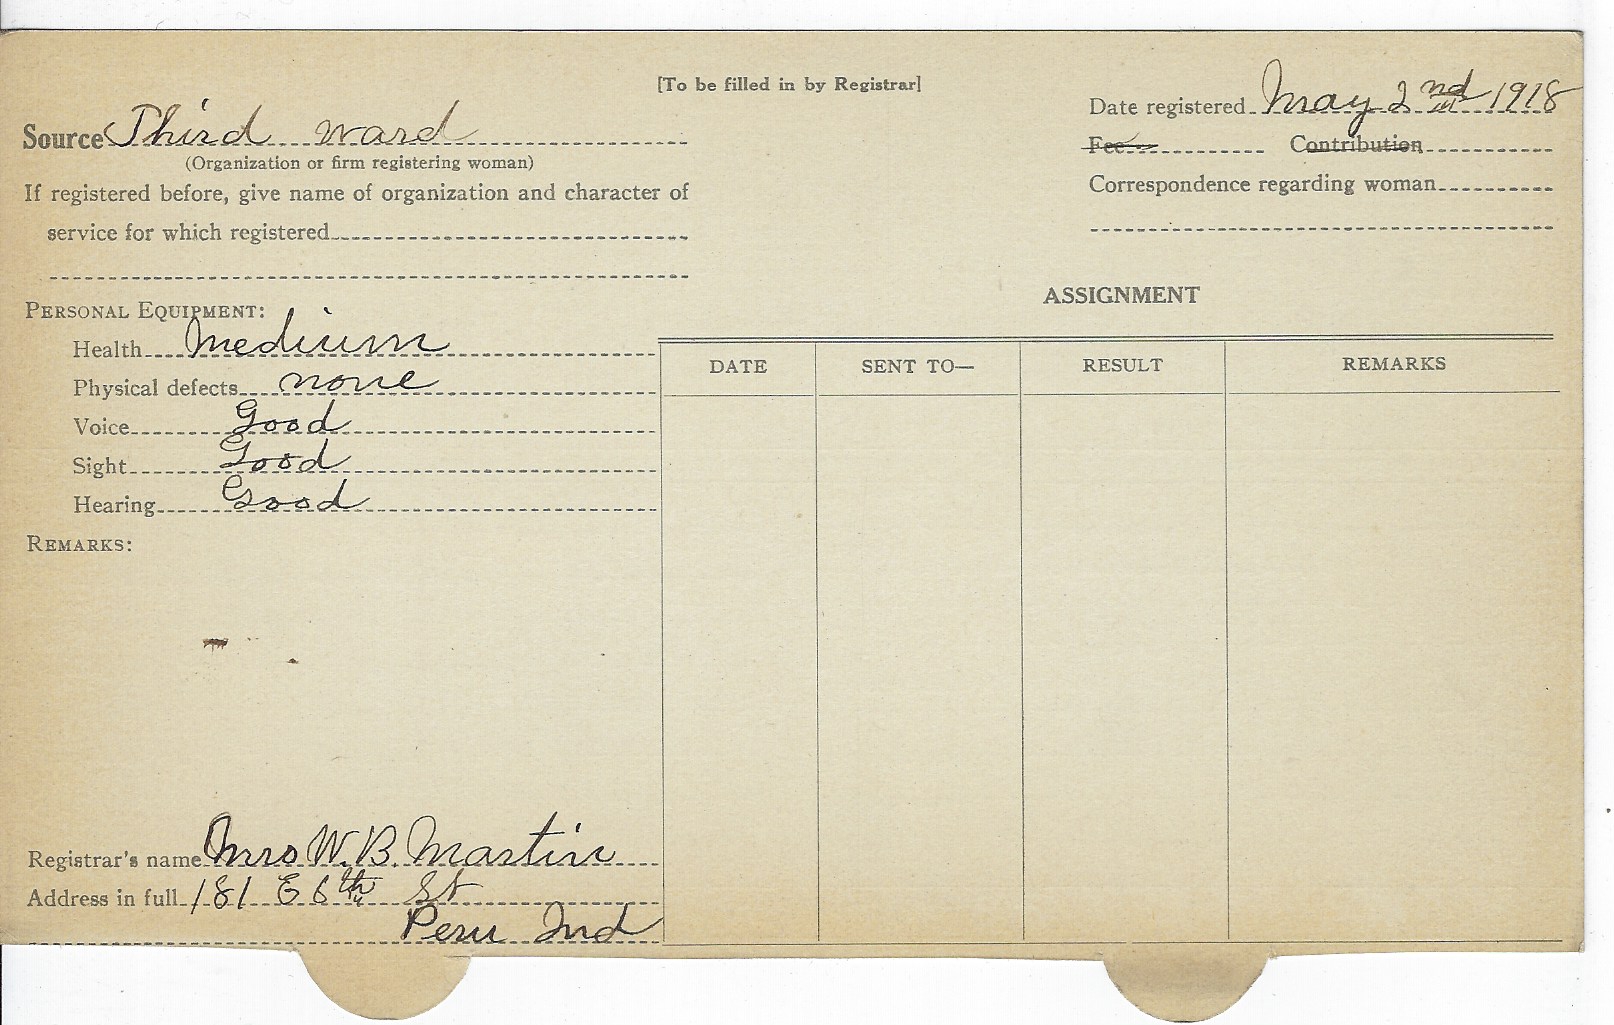 [To be filled in by Registrar]
Date registered May 2nd 1918
Source Third ward
Fee Contribution
(Organization or firm registering woman)
If registered before, give name of organization and character of
Correspondence regarding woman
service for which registered
ASSIGNMENT
PERSONAL EQUIPMENT:
Health Medium
DATE SENT TO— RESULT REMARKS
Physical defects none
Voice Good
Sight Good
Hearing Good
REMARKS:
Registrar's name Mrs W. B. Martin
Address in full 181 E 6th St
Peru Ind